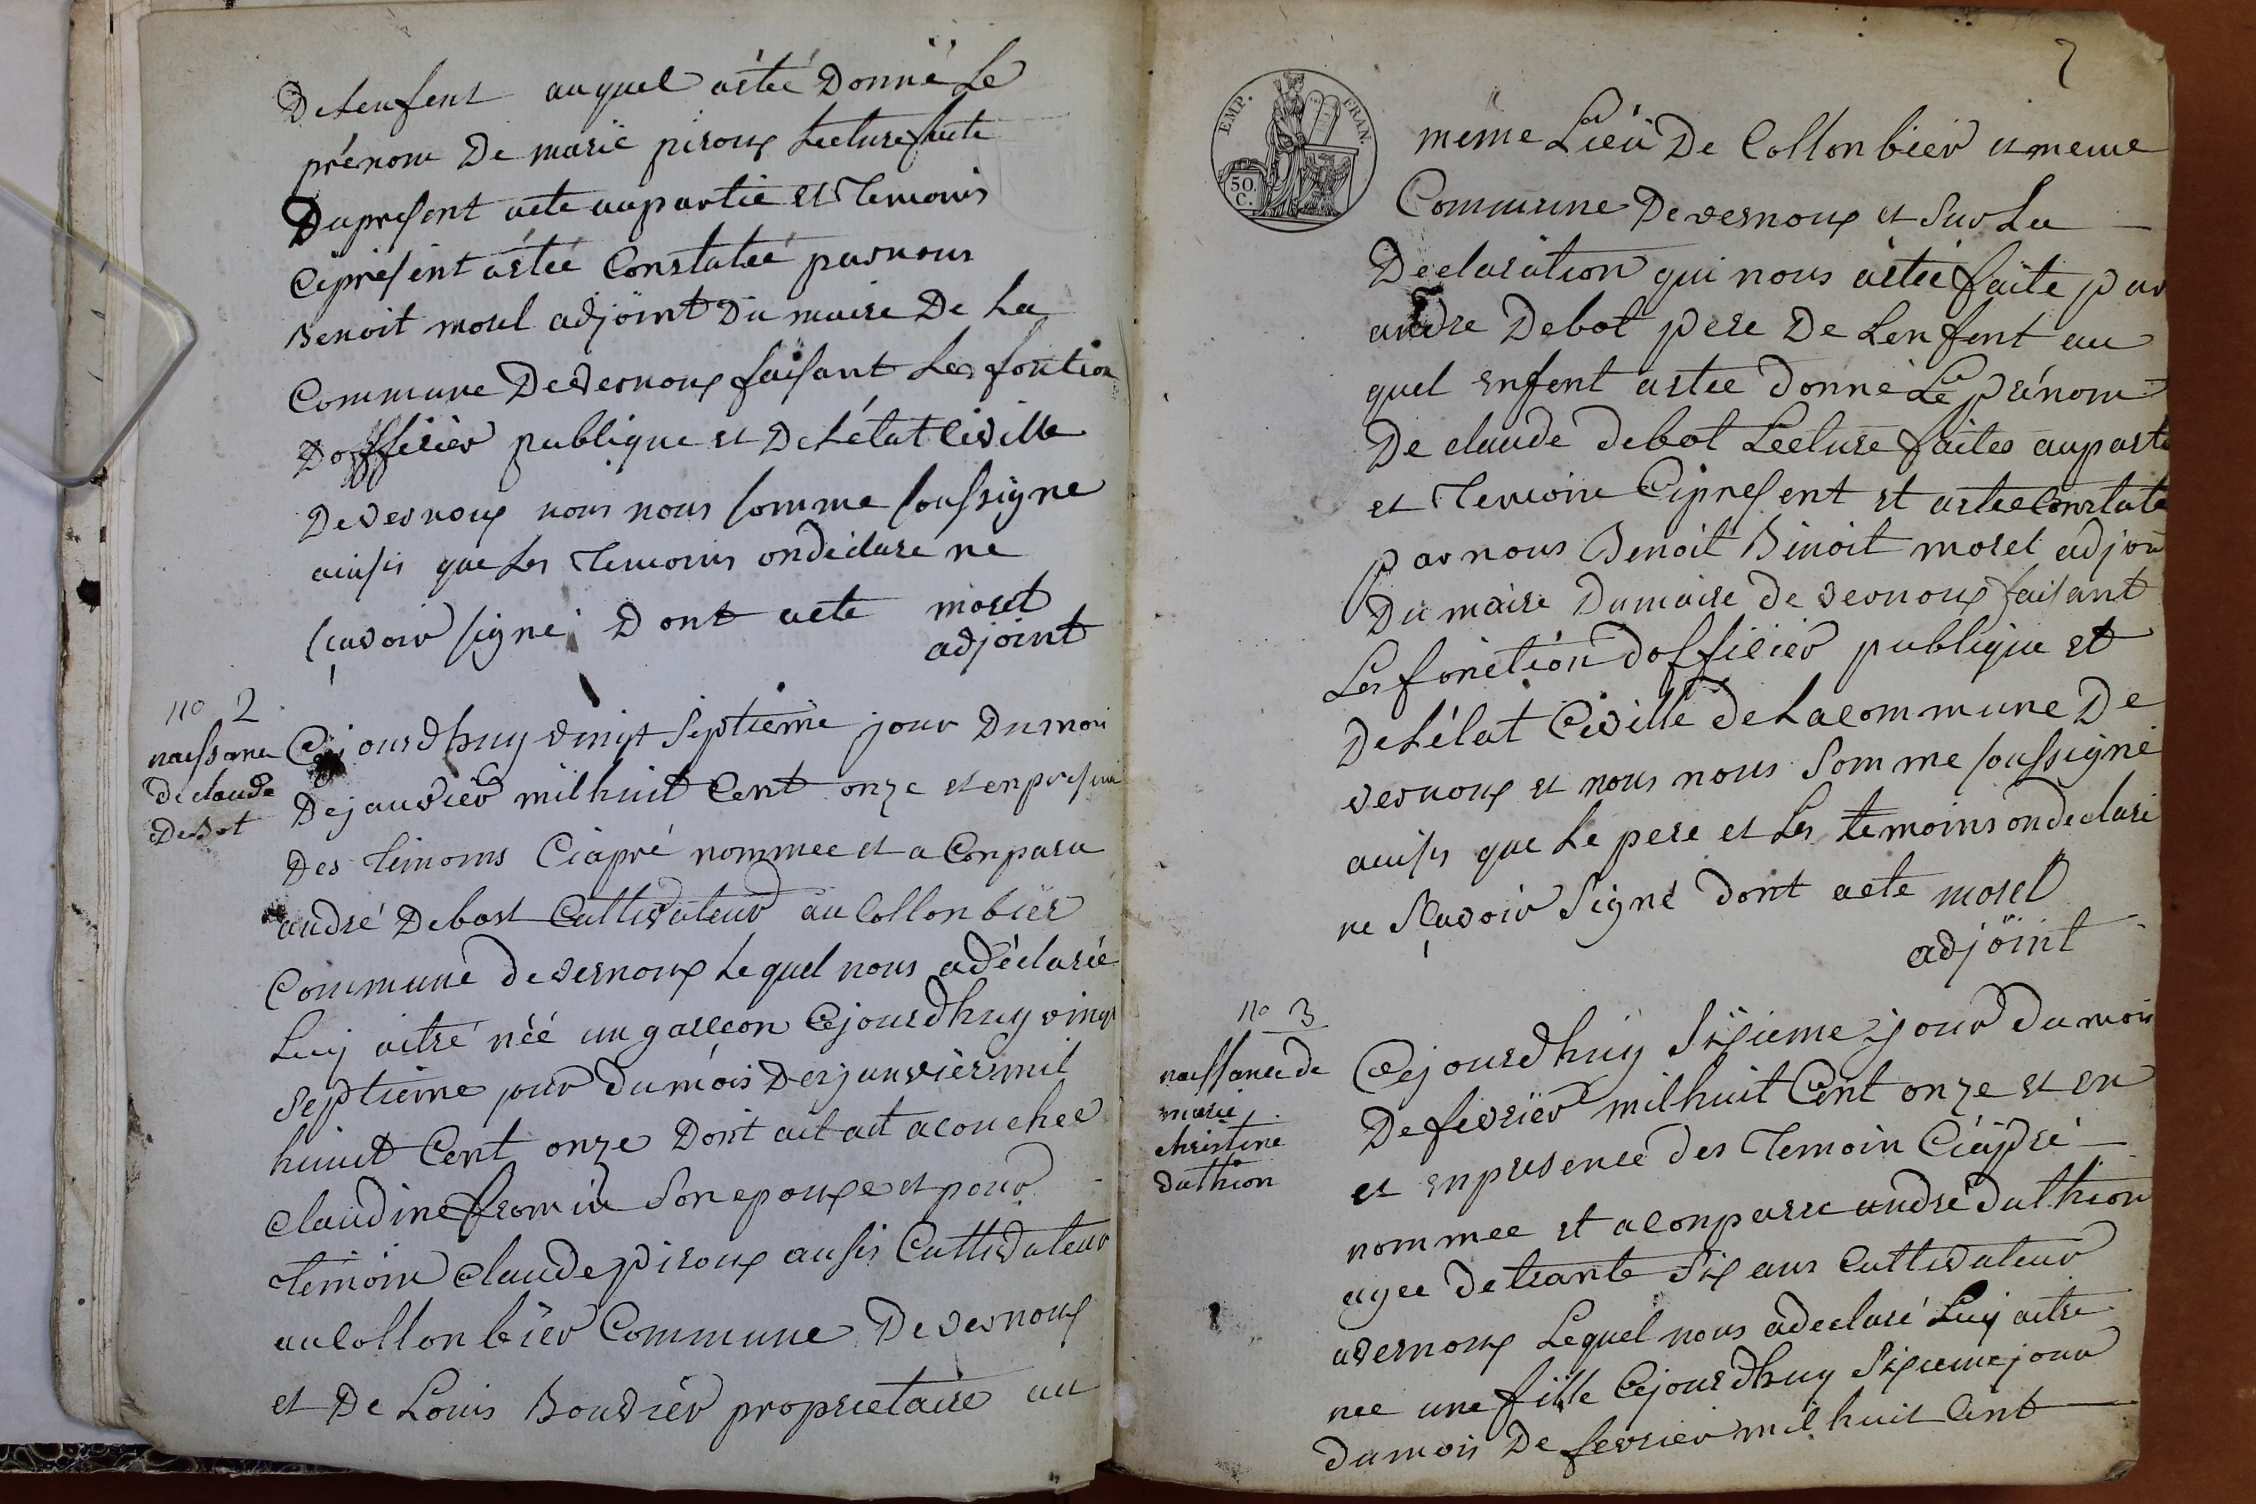 Delenfent auquel astée Donné Le
prénom De marie piroux Lecture faite
Dupresent acte aupartie et Temoins
Cipresent astée Constatée parnous
Benoit morel adjoint Du maire De La
Commune Devernoux faisant Les fontion
Dofficier publique et De Létat Civille
Devernoux nous nous somme soussigne
ainsis que Les Temoins ondéclaré ne
sçavoir signé Dont acte morel
adjoint
no 2
naissance
de claude
Debot
Cejourdhuy vingt Septieme jour Du mois
De janvier mil huit Cent onze et en presence
Des Temoins Ciapré nommee et a Conparu
andré Debost Cultivateur au Collonbier
Commune devernoux Lequel nous adéclarée
Luy aitré néé un garçcon Cejourdhuy vingt
Septieme jour du mois De janvier mil
huit Cent onze Dont ait ait acouchee
Claudine fromin Son epouxe et pour
Temoin Claude piroux ausis Cultivateur
au Collonbier Commune De vernoux
et De Louis Bouvier proprietaire au
2
EMP. FRAN.
50.
C.
meme Lieu De Collonbier et meme
Commune De vernoux et Sur La
Declaration qui nous astée faite par
andre Debot pere De Lenfent au
quel enfent astee donné Le prénom
De claude debot Lecture faites auparte
et Temoin Cipresent et astee Constate
par nous Benoit Benoit morel adjoin
Du maire Du maire De vernoux faisant
Les fonction Dofficier publique et
De Létat Civille de La commune De
vernoux et nous nous Somme soussigné
ainsis que Le pere et Les temoins ondeclaré
ne Sçavoir Signé Dont acte morel
adjoint
no 3
naissance de
marie
christine
duthion
Cejourdhuy Sixieme jour Du mois
De fevrier mil huit Cent onze et en
et en presence des Temoin Ciapré
nommee et a Conparu andré duthion
agee De trante Six ans Cultivateur
avernoux Lequel nous adeclaré Luy aitre
nee une fille Cejourdhuy Sixieme jour
du mois De fevrier mil huit Cent